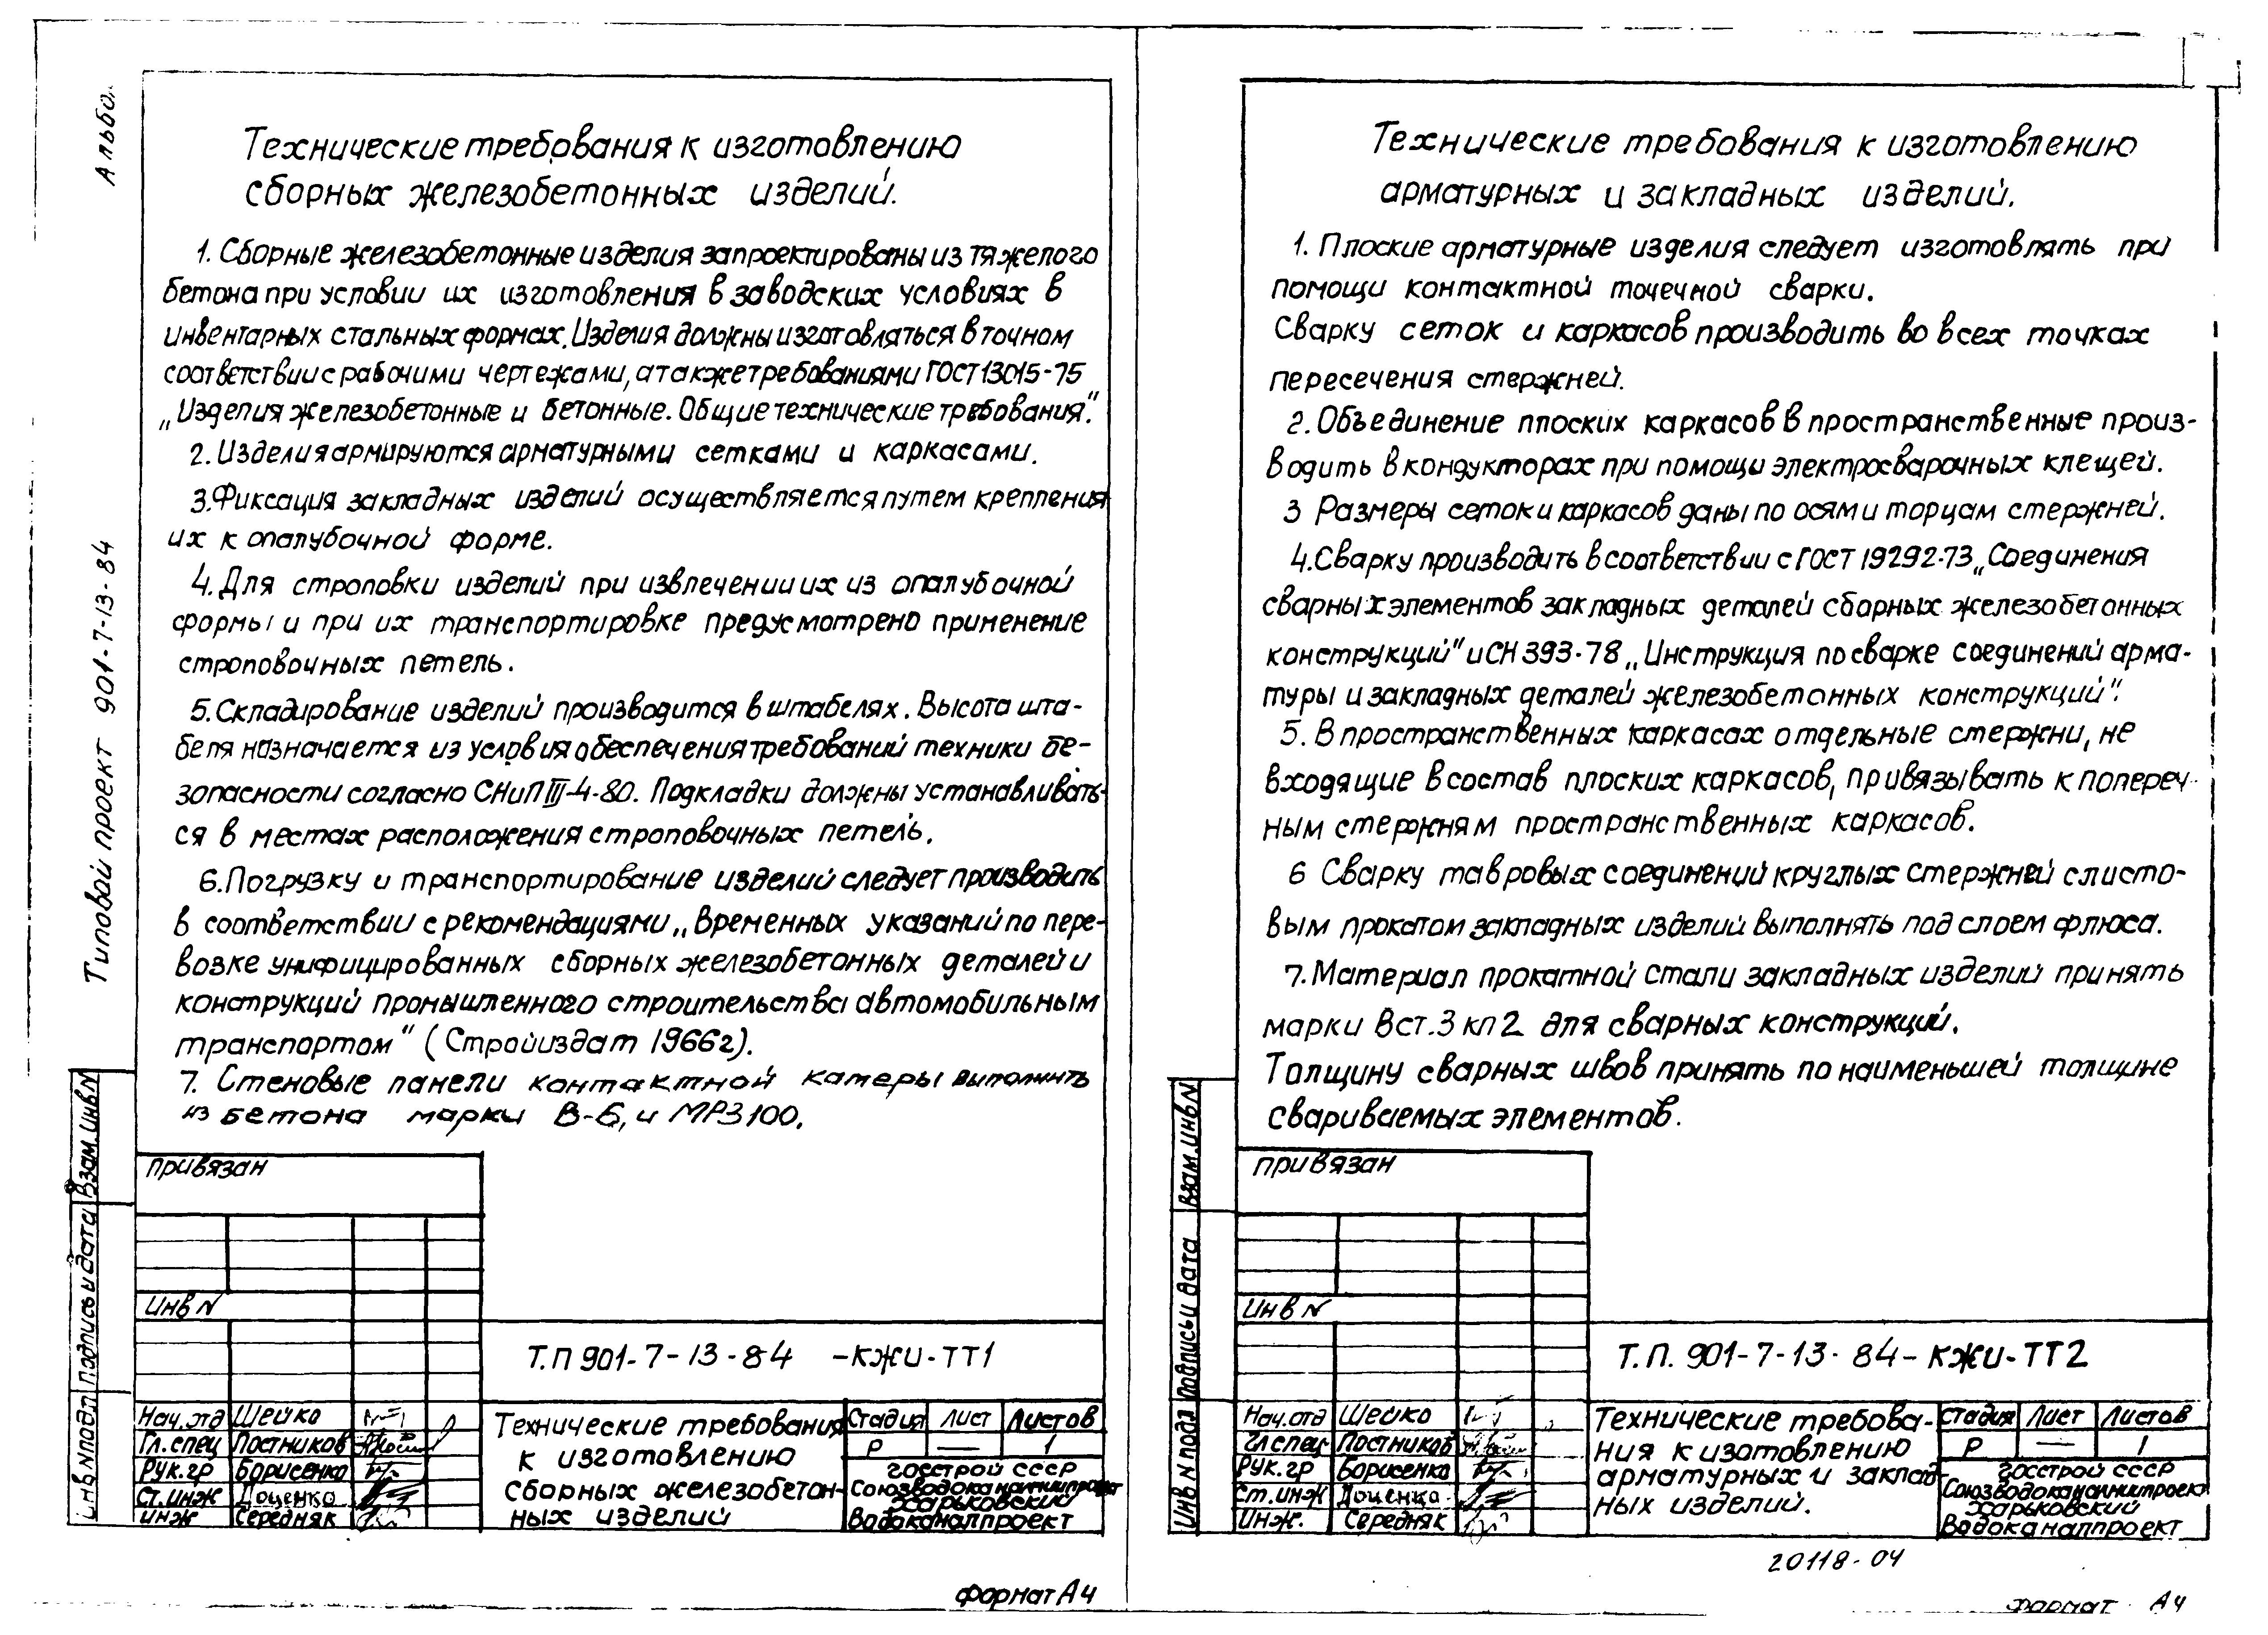 Альбо
Типовой проект 901-7-13-84
Технические требования к изготовлению
сборных железобетонных изделий.
1. Сборные железобетонные изделия запроектированы из тяжелого
бетона при условии их изготовления в заводских условиях в
инвентарных стальных формах. Изделия должны изготовляться в точном
соответствии с рабочими чертежами, а также требованиями ГОСТ 13015-75
„Изделия железобетонные и бетонные. Общие технические требования".
2. Изделия армируются арматурными сетками и каркасами.
3. Фиксация закладных изделий осуществляется путем крепления
их к опалубочной форме.
4. Для строповки изделий при извлечении их из опалубочной
формы и при их транспортировке предусмотрено применение
строповочных петель.
5. Складирование изделий производится в штабелях. Высота шта-
беля назначается из условия обеспечения требований техники бе-
зопасности согласно СНиП III-4-80. Подкладки должны устанавливать-
ся в местах расположения строповочных петель.
6. Погрузку и транспортирование изделий следует производить
в соответствии с рекомендациями „Временных указаний по пере-
возке унифицированных сборных железобетонных деталей и
конструкций промышленного строительства автомобильным
транспортом" (Стройиздат 1966г).
7. Стеновые панели контактной камеры выполнить
из бетона марки В-6, и МРЗ 100.
привязан
Инв N
Т.П 901-7-13-84 -КЖИ-ТТ1
Нач.отд Шейко
Гл.спец Постников
Рук.гр Борисенко
Ст.инж Доценко
инж Середняк
Технические требования
к изготовлению
сборных железобетон-
ных изделий
Стадия Лист Листов
Р — 1
Госстрой СССР
Союзводоканалниипроект
Харьковский
Водоканалпроект
Инв N подл Подпись и дата Взам.инв N
Формат А4
Технические требования к изготовлению
арматурных и закладных изделий.
1. Плоские арматурные изделия следует изготовлять при
помощи контактной точечной сварки.
Сварку сеток и каркасов производить во всех точках
пересечения стержней.
2. Объединение плоских каркасов в пространственные произ-
водить в кондукторах при помощи электросварочных клещей.
3 Размеры сеток и каркасов даны по осям и торцам стержней.
4. Сварку производить в соответствии с ГОСТ 19292-73 „Соединения
сварных элементов закладных деталей сборных железобетонных
конструкций" и СН 393-78 „Инструкция по сварке соединений арма-
туры и закладных деталей железобетонных конструкций".
5. В пространственных каркасах отдельные стержни, не
входящие в состав плоских каркасов, привязывать к попереч-
ным стержням пространственных каркасов.
6 Сварку тавровых соединений круглых стержней с листо-
вым прокатом закладных изделий выполнять под слоем флюса.
7. Материал прокатной стали закладных изделий принять
марки Вст.3 кп2 для сварных конструкций.
Толщину сварных швов принять по наименьшей толщине
свариваемых элементов.
привязан
Инв N
Т.П. 901-7-13-84-КЖИ-ТТ2
Нач.отд Шейко
Гл спец Постников
Рук.гр Борисенко
Ст.инж Доценко
инж. Середняк
Технические требова-
ния к изотовлению
арматурных и заклад-
ных изделий.
Стадия Лист Листов
Р — 1
Госстрой СССР
Союзводоканалниипроект
Харьковский
Водоканалпроект
Инв N подл Подпись и дата Взам.инв N
20118-04
Формат А4